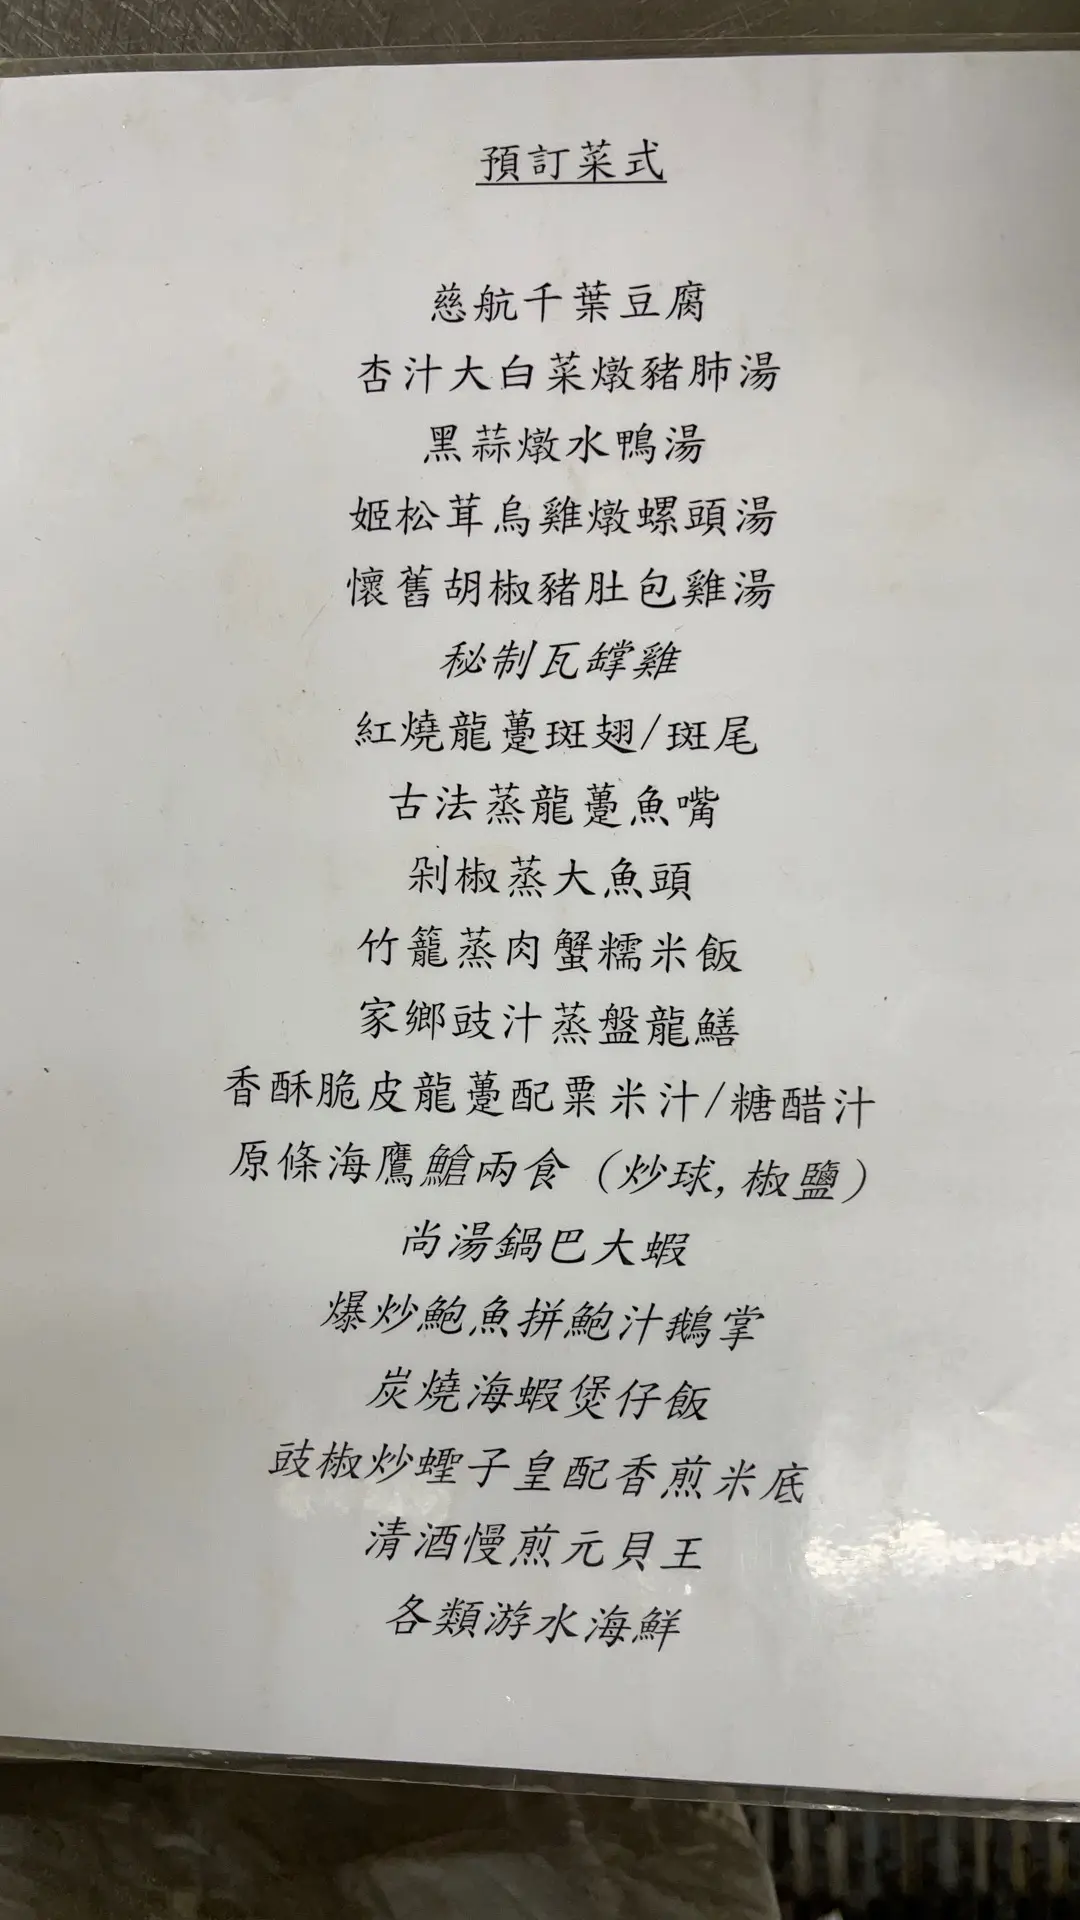 預訂菜式
慈航千葉豆腐
杏汁大白菜燉豬肺湯
黑蒜燉水鴨湯
姬松茸烏雞燉螺頭湯
懷舊胡椒豬肚包雞湯
秘制瓦罉雞
紅燒龍躉斑翅/斑尾
古法蒸龍躉魚嘴
剁椒蒸大魚頭
竹籠蒸肉蟹糯米飯
家鄉豉汁蒸盤龍鱔
香酥脆皮龍躉配粟米汁/糖醋汁
原條海鷹鰽兩食（炒球, 椒鹽）
尚湯鍋巴大蝦
爆炒鮑魚拼鮑汁鵝掌
炭燒海蝦煲仔飯
豉椒炒蟶子皇配香煎米底
清酒慢煎元貝王
各類游水海鮮